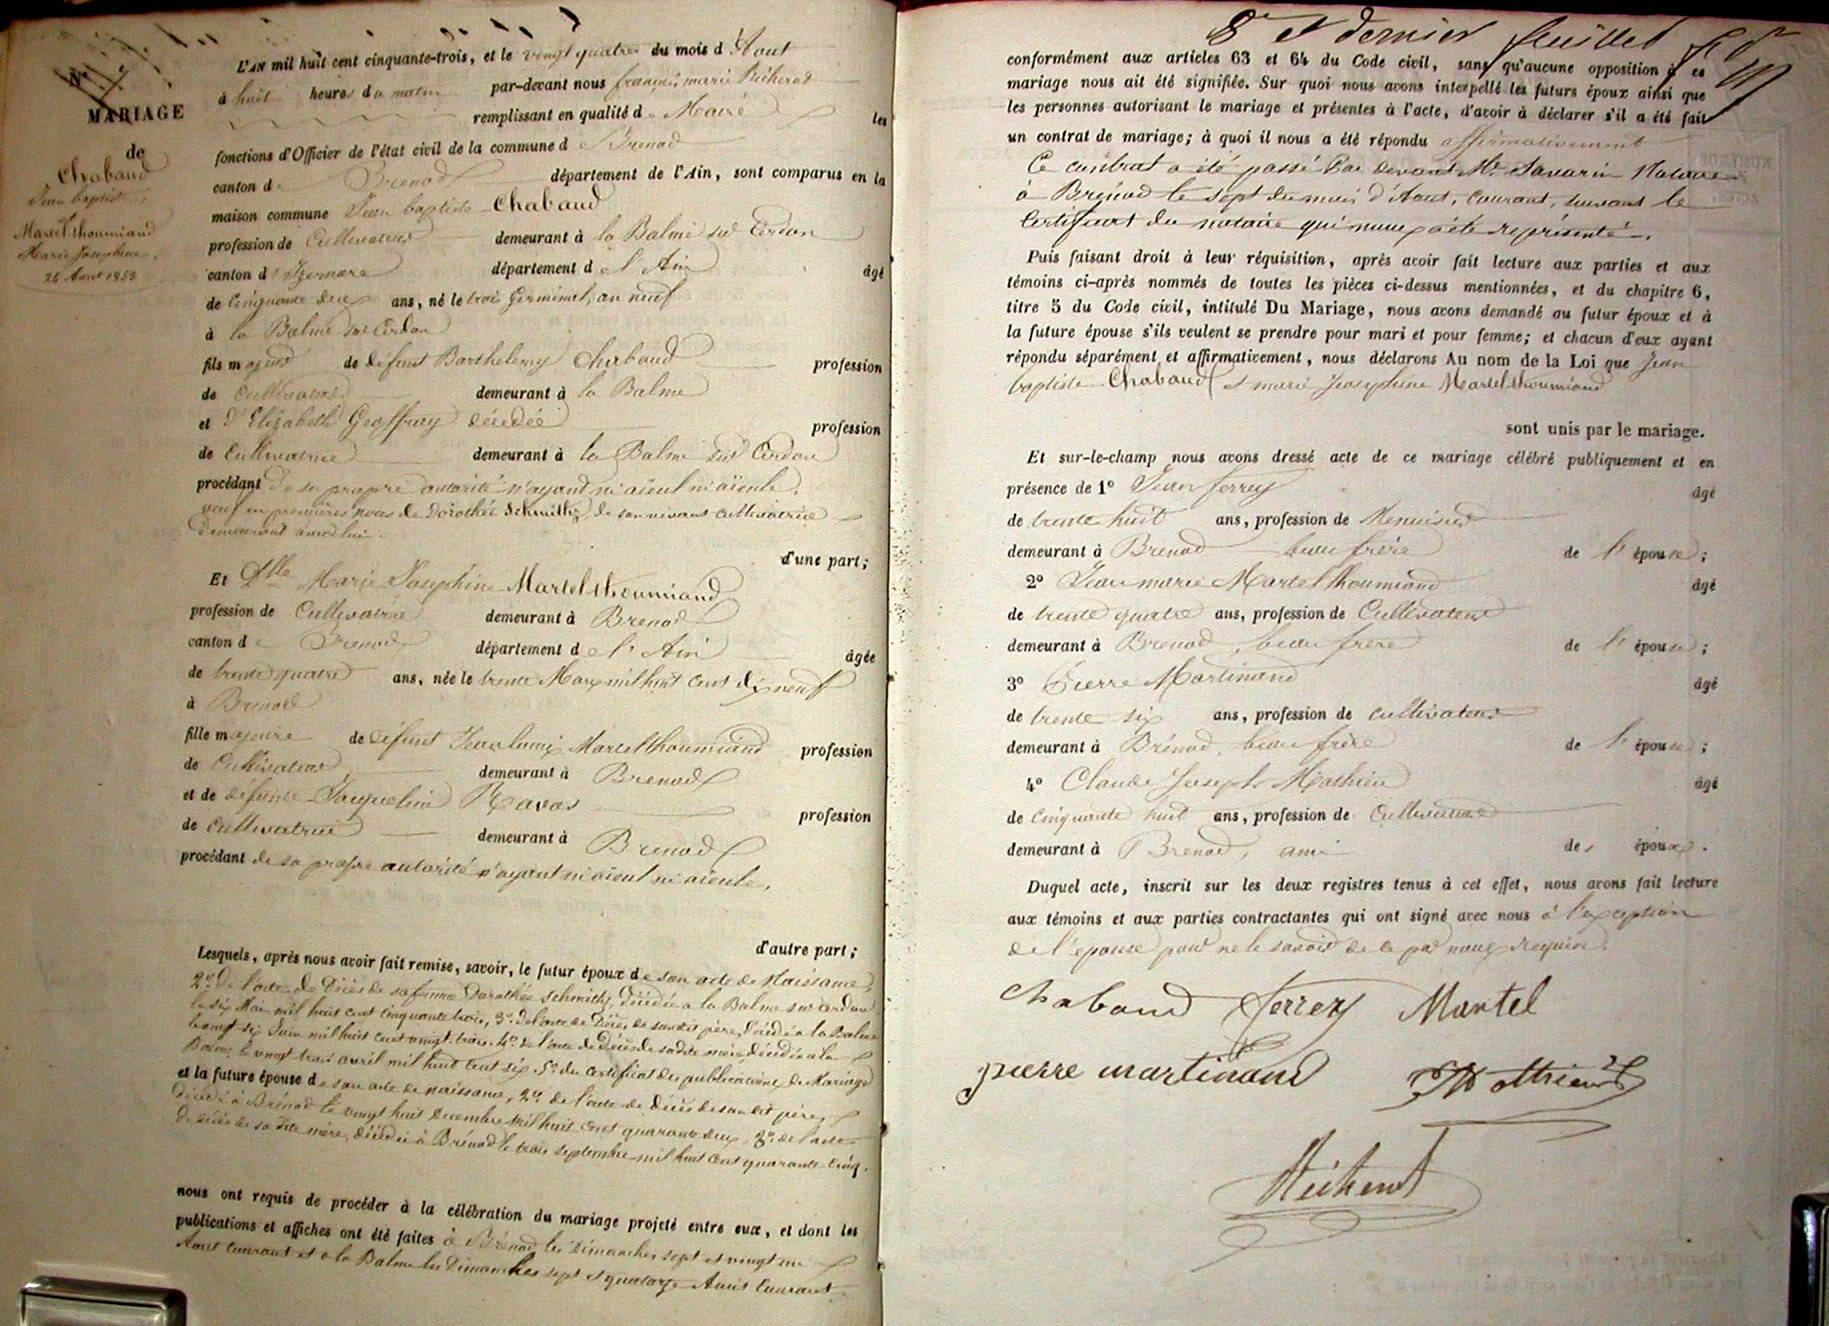 MARIAGE
de
Chabaud
Jean baptiste,
et
Martel thoumiand
Marie Josephine,
24 Aout 1853
L'AN mil huit cent cinquante-trois, et le vingt quatre du mois d'Aout
à huit heures du matin par-devant nous françois marie Richerod
remplissant en qualité de Maire les
fonctions d'Officier de l'état civil de la commune de Brenod
canton de Brenod département de l'Ain, sont comparus en la
maison commune Jean baptiste Chabaud
profession de Cultivateur demeurant à la Balme sur Cerdon
canton d'Izernore département de l'Ain âgé
de Cinquante deux ans, né le trois Germinal, an neuf
à la Balme sur Cerdon
fils majeur de défunt Barthelemy Chabaud profession
de Cultivateur demeurant à la Balme
et d'Elizabeth Geoffray décédée profession
de Cultivatrice demeurant à la Balme sur Cerdon
procédant de sa propre autorité n'ayant ni aïeul ni aïeule,
veuf en premières noces de Dorothée Schmitly, de son vivant cultivatrice
demeurant avec lui.
d'une part;
Et Dlle Marie Josephine Martel thoumiand
profession de Cultivatrice demeurant à Brenod
canton de Brenod département de l'Ain âgée
de trente quatre ans, née le trente Mars mil huit cent dix neuf
à Brenod
fille majeure de défunt Jean louis Martel thoumiand profession
de Cultivateur demeurant à Brenod
et de défunte Jacqueline Ravas profession
de Cultivatrice demeurant à Brenod
procédant de sa propre autorité n'ayant ni aïeul ni aïeule,
d'autre part;
Lesquels, après nous avoir fait remise, savoir, le futur époux de son acte de Naissance,
2° de l'acte de Décès de sa femme Dorothée Schmitly, décédée à la Balme sur Cerdon
le six Mai mil huit cent cinquante trois, 3° de l'acte de Décès de son dit père, décédé à la Balme
le vingt six Juin mil huit cent vingt trois, 4° de l'acte de Décès de sa dite mère décédée à la
Balme le vingt trois avril mil huit cent six, 5° du certificat des publications de Mariage
et la future épouse de son acte de naissance, 2° de l'acte de décès de son dit père,
décédé à Brénod le vingt huit Decembre mil huit cent quarante deux, 3° de l'acte
de décès de sa dite mère, décédée à Brénod le trois septembre mil huit cent quarante cinq.
nous ont requis de procéder à la célébration du mariage projeté entre eux, et dont les
publications et affiches ont été faites à Brénod les Dimanches sept et vingt un
Aout courant et à la Balme les Dimanches sept et quatorze Aout courant
8e et dernier feuillet
conformément aux articles 63 et 64 du Code civil, sans qu'aucune opposition à ce
mariage nous ait été signifiée. Sur quoi nous avons interpellé les futurs époux ainsi que
les personnes autorisant le mariage et présentes à l'acte, d'avoir à déclarer s'il a été fait
un contrat de mariage; à quoi il nous a été répondu affirmativement
Ce contrat a été passé Par devant Me Savarin Notaire
à Brénod le sept du mois d'Aout, courant, suivant le
Certificat du notaire qui nous a été représenté.
Puis faisant droit à leur réquisition, après avoir fait lecture aux parties et aux
témoins ci-après nommés de toutes les pièces ci-dessus mentionnées, et du chapitre 6,
titre 5 du Code civil, intitulé Du Mariage, nous avons demandé au futur époux et à
la future épouse s'ils veulent se prendre pour mari et pour femme; et chacun d'eux ayant
répondu séparément et affirmativement, nous déclarons Au nom de la Loi que Jean
baptiste Chabaud et marie Josephine Martel thoumiand
sont unis par le mariage.
Et sur-le-champ nous avons dressé acte de ce mariage célébré publiquement et en
présence de 1° Jean ferrey âgé
de trente huit ans, profession de Menuisier
demeurant à Brenod beau frère de l'épouse;
2° Jean marie Martel thoumiand âgé
de trente quatre ans, profession de Cultivateur
demeurant à Brenod, beau frère de l'épouse;
3° Pierre Martinand âgé
de trente six ans, profession de cultivateur
demeurant à Brénod, beau frère de l'épouse;
4° Claude Joseph Mathieu âgé
de Cinquante huit ans, profession de Cultivateur
demeurant à Brenod, ami des époux.
Duquel acte, inscrit sur les deux registres tenus à cet effet, nous avons fait lecture
aux témoins et aux parties contractantes qui ont signé avec nous à l'exception
de l'epouse pour ne le savoir de ce par nous requise.
Chabaud ferrey Martel
pierre martinand Mathieu
Richerod